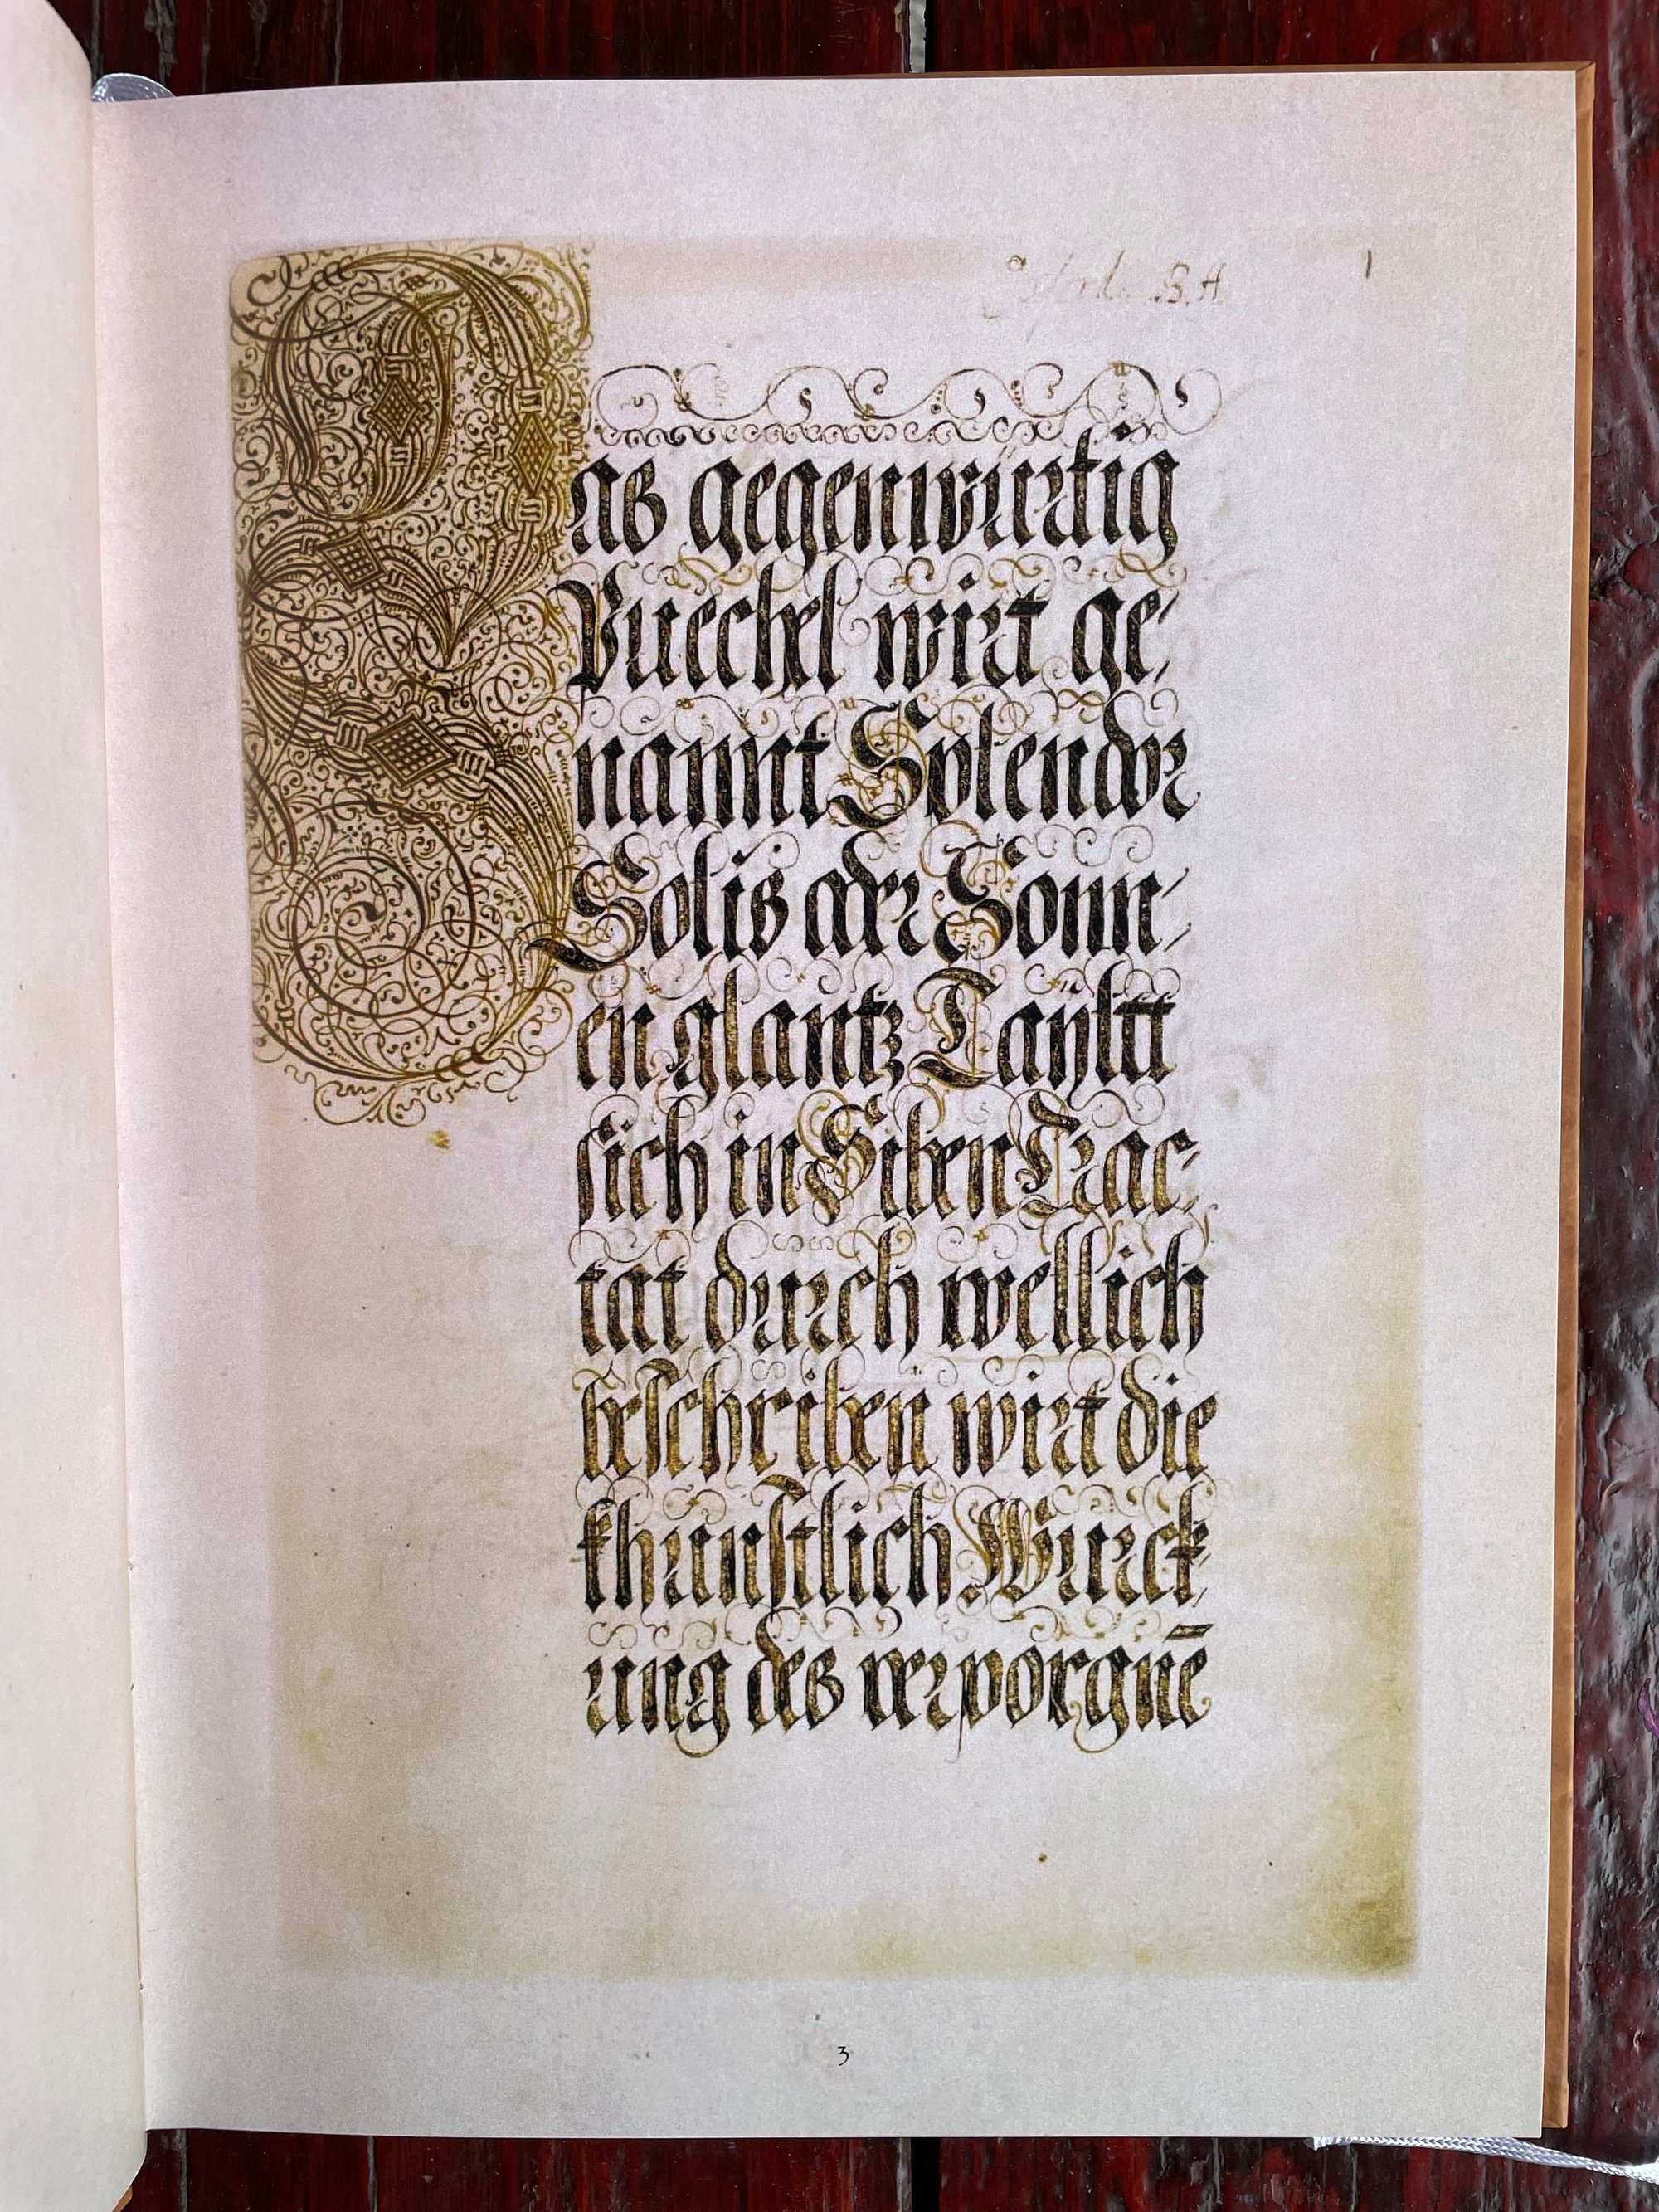 B. A. 1
Das gegenwürtig
Buechel wirt ge/
nannt Splendor
Solis oder Sonn/
en glantz Tayltt
sich in Siben Trac/
tat durch wellich
beschriben wirt die
khunstlich Würck/
ung des verporgnē
3